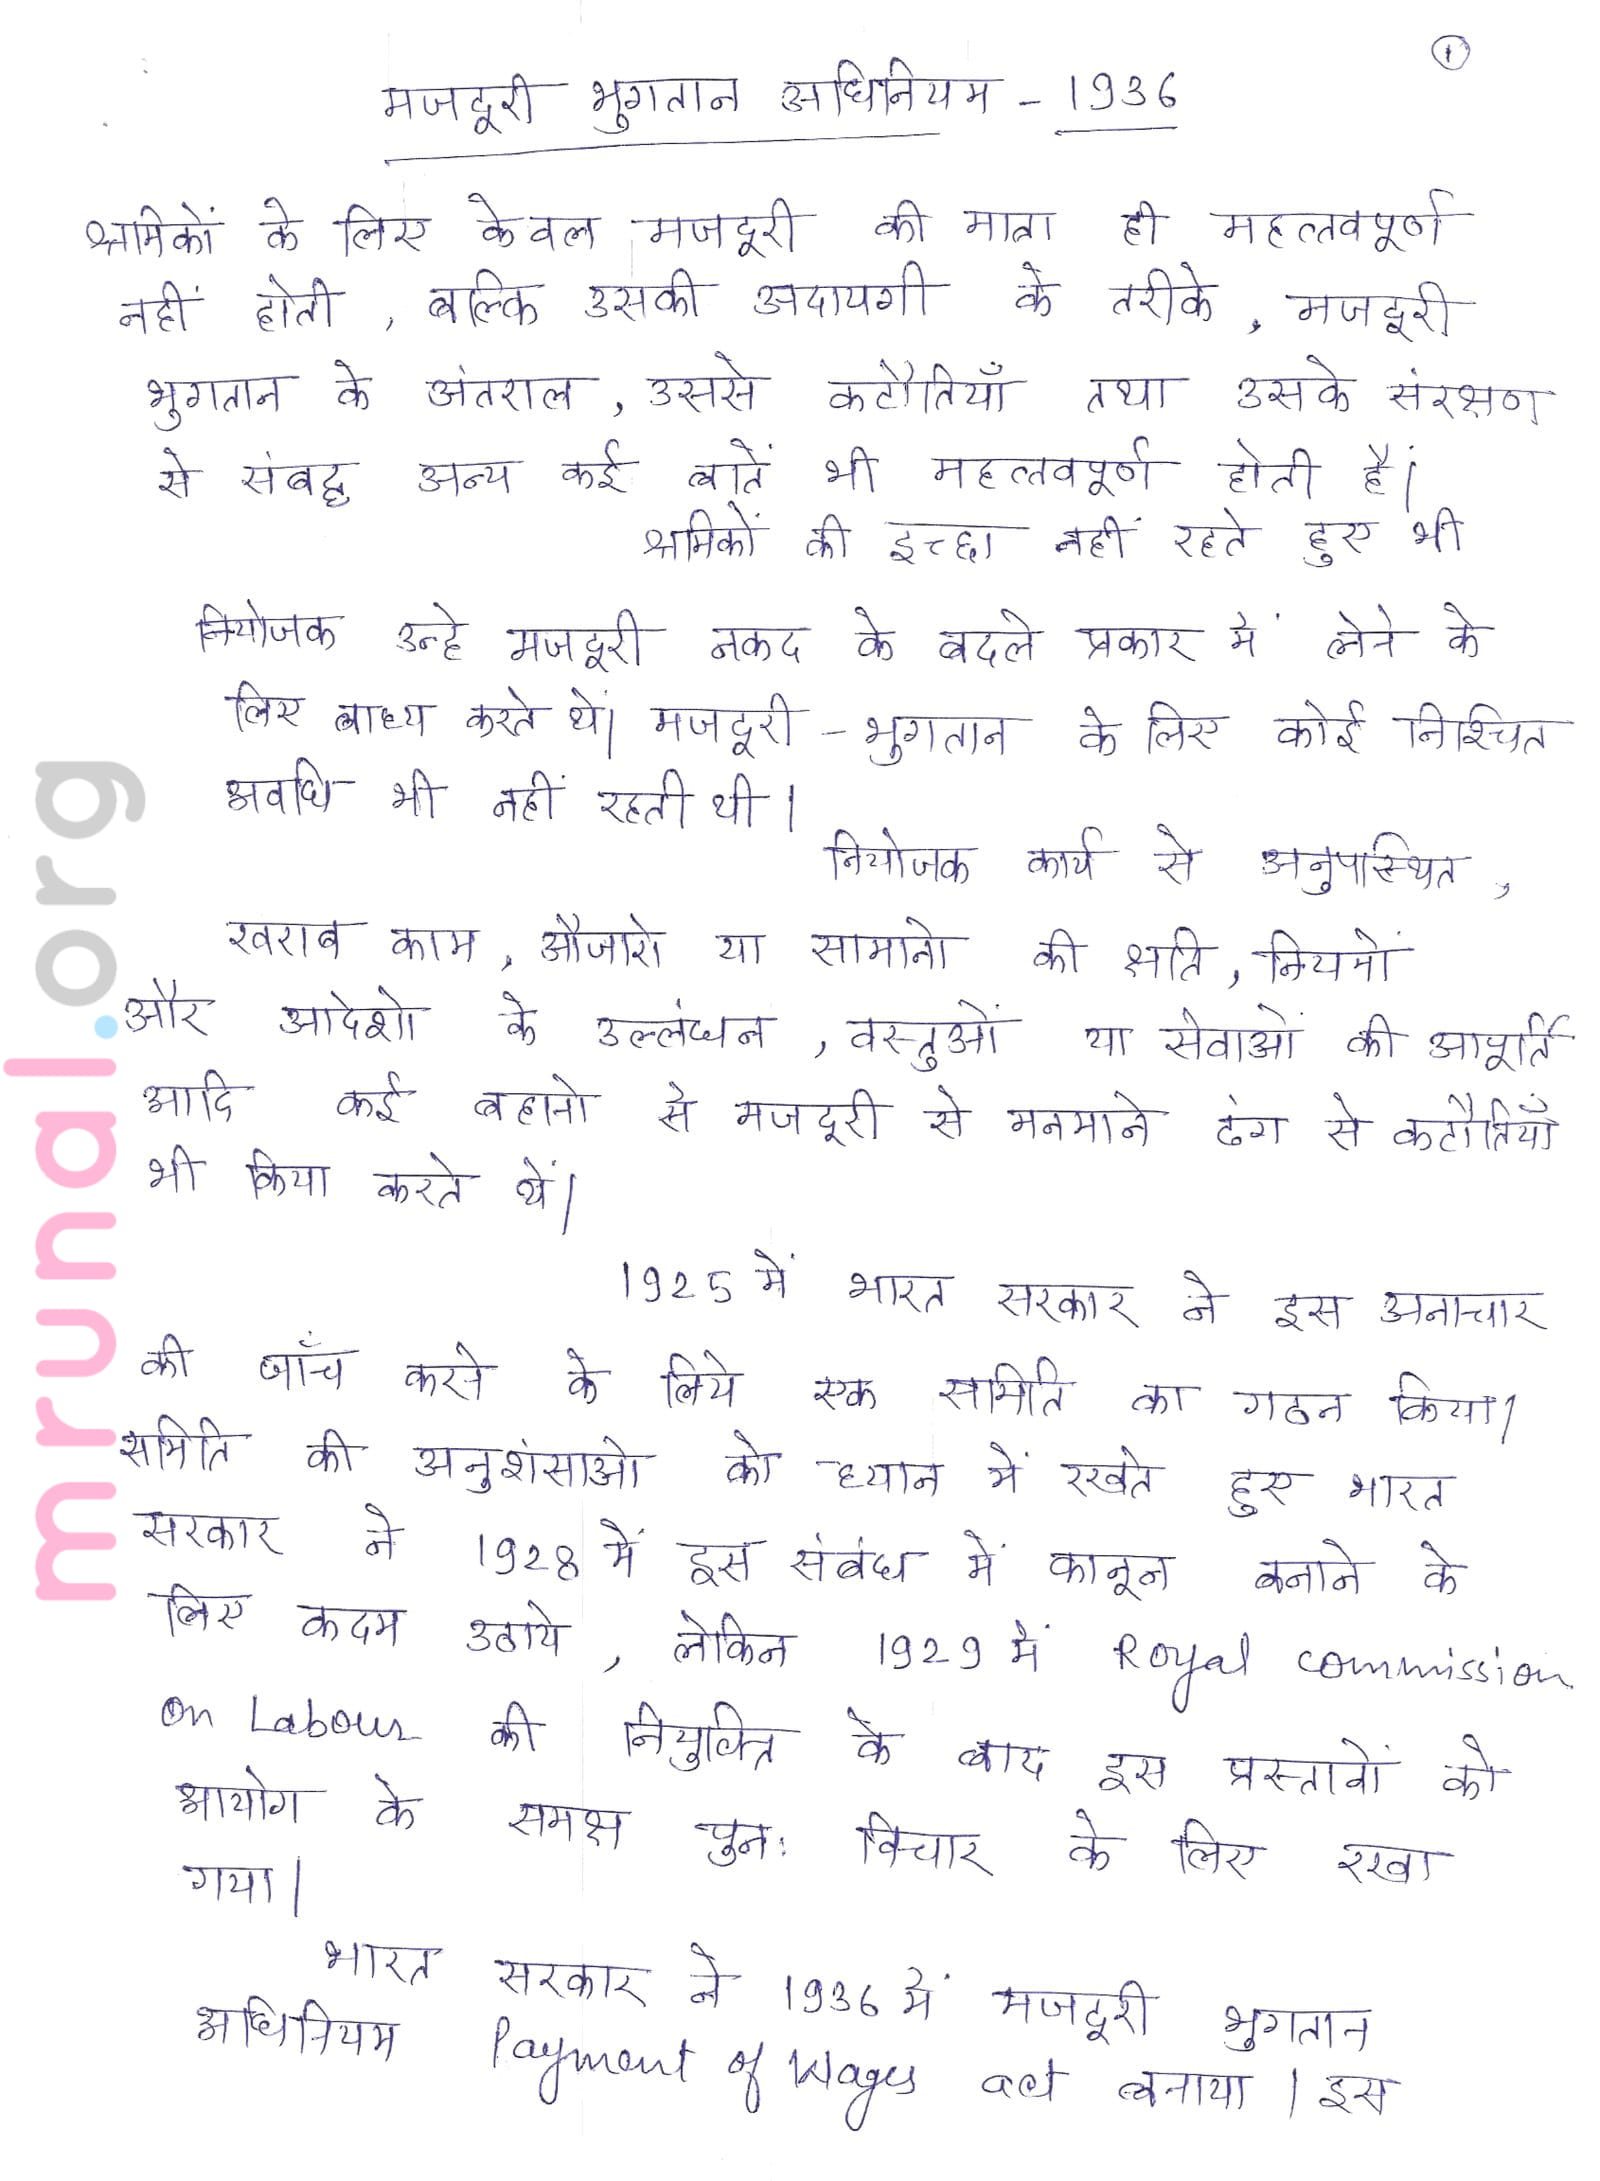 1
मजदूरी भुगतान अधिनियम - 1936
श्रमिकों के लिए केवल मजदूरी की मात्रा ही महत्तवपूर्ण
नहीं होती, बल्कि उसकी अदायगी के तरीके, मजदूरी
भुगतान के अंतराल, उससे कटौतियाँ तथा उसके संरक्षण
से संबद्ध अन्य कई बातें भी महत्तवपूर्ण होती हैं।
श्रमिकों की इच्छा नहीं रहते हुए भी
नियोजक उन्हे मजदूरी नकद के बदले प्रकार में लेने के
लिए बाध्य करते थें। मजदूरी - भुगतान के लिए कोई निश्चित
अवधि भी नहीं रहती थी।
नियोजक कार्य से अनुपस्थित,
खराब काम, औजारो या सामानो की क्षति, नियमों
और आदेशो के उल्लंघन, वस्तुओं या सेवाओं की आपूर्ति
आदि कई बहानो से मजदूरी से मनमाने ढंग से कटौतियाँ
भी किया करते थें।
1925 में भारत सरकार ने इस अनाचार
की जाँच करने के लिये एक समिति का गठन किया।
समिति की अनुशंसाओ को ध्यान में रखते हुए भारत
सरकार ने 1928 में इस संबंध में कानून बनाने के
लिए कदम उठाये, लेकिन 1929 में Royal commission
on Labour की नियुक्ति के बाद इस प्रस्तावों को
आयोग के समक्ष पुन: विचार के लिए रखा
गया।
भारत सरकार ने 1936 में मजदूरी भुगतान
अधिनियम Payment of Wages act बनाया। इस
mrunal.org